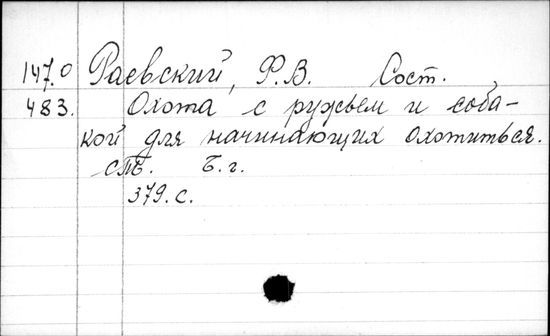 147.0 Раевский, Ф.В. Сост.
483. Охота с ружьем и соба-
кой для начинающих охотиться.
спб. Б.г.
379.с.